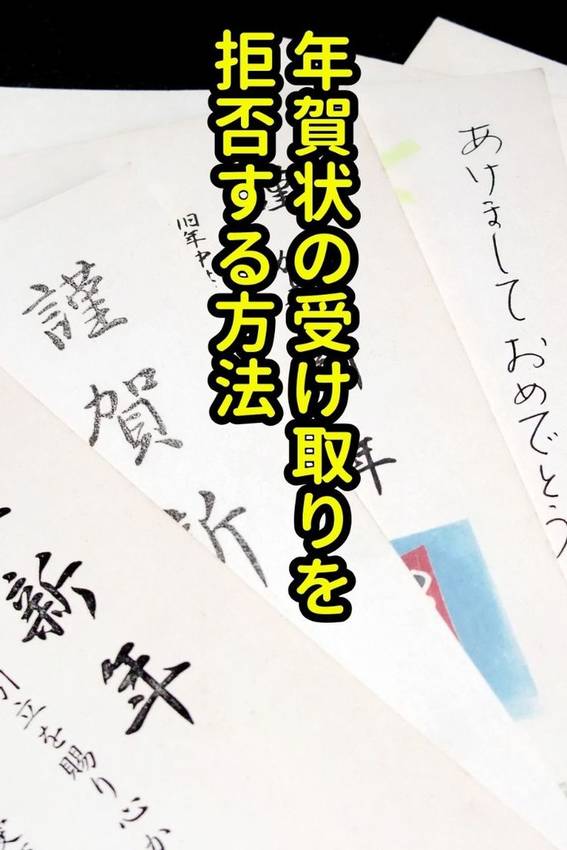 年賀状の受け取りを
拒否する方法
あけましておめでとう
旧年中
謹賀新
新年
引立を賜り心か